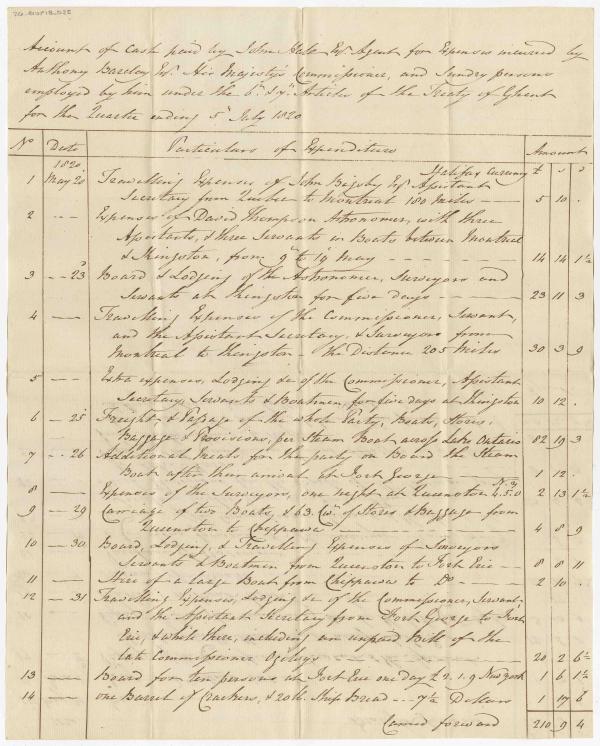 Account of Cash paid by John Hale Esqr. Agent for Expences incurred by
Anthony Barclay Esqr. His Majesty's Commissioner, and Sundry persons
employed by him under the 6th & 7th Articles of the Treaty of Ghent
for the Quarter ending 5th July 1820
No Date Particulars of Expenditure Amount
1820 Halifax Currency £ s d
1 May 20 Travelling Expences of John Bigsby Esqr. Assistant
Secretary from Quebec to Montreal 180 Miles — 5 10 .
2 — Expences of David Thompson Astronomer, with three
Assistants, & three Servants in Boats between Montreal
& Kingston, from 9th to 19 May — 14 14 1½
3 — 23d Board & Lodging of the Astronomer, Surveyors and
Servants at Kingston for five days — 23 11 3
4 — Travelling Expences of the Commissioner, Servant,
and the Assistant Secretary, & Surveyors from
Montreal to Kingston - the Distance 205 Miles 30 3 9
5 — Extra expences, Lodging &c of the Commissioner, Assistant
Secretary, Servants & Boatmen, for five days at Kingston 10 12 .
6 — 25 Freight & Passage of the whole Party, Boats, Stores,
Baggage & Provisions, per Steam Boat across Lake Ontario 82 19 3
7 — 26 Additional Meals for the party on Board the Steam
Boat after their arrival at Fort George — 1 12 .
8 — Expences of the Surveyors, one night at Queenston N.Y. 4.5.0 2 13 1½
9 — 29 Carriage of two Boats, & 63 Cwt. of Stores & Baggage from
Queenston to Chippawa — 4 8 9
10 — 30 Board, Lodging, & Travelling Expences of Surveyors
Servants & Boatmen from Queenston to Fort Erie — 8 8 11
11 — Hire of a large Boat from Chippawa to Do — 2 10 .
12 — 31 Travelling Expences, Lodging &c of the Commissioner, Servant,
and the Assistant Secretary from Fort George to Fort
Erie, & while there, including an unpaid Bill of the
late Commissioner Ogilvy — 20 2 6½
13 — Board for ten persons at Fort Erie one day £2.1.9 New York 1 6 1½
14 — one Barrel of Crackers, & 20lb. Ship Bread — 7½ Dollars 1 17 6
Carried forward 210 9 4